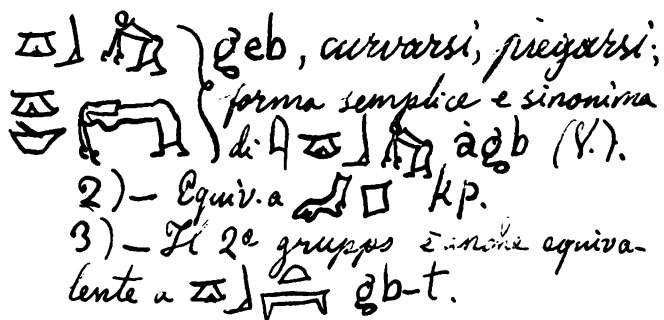 geb, curvarsi, piegarsi;
forma semplice e sinonima
di àgb (V.).
2) — Equiv. a kp.
3) — Il 2º gruppo è anche equiva-
lente a gb-t.